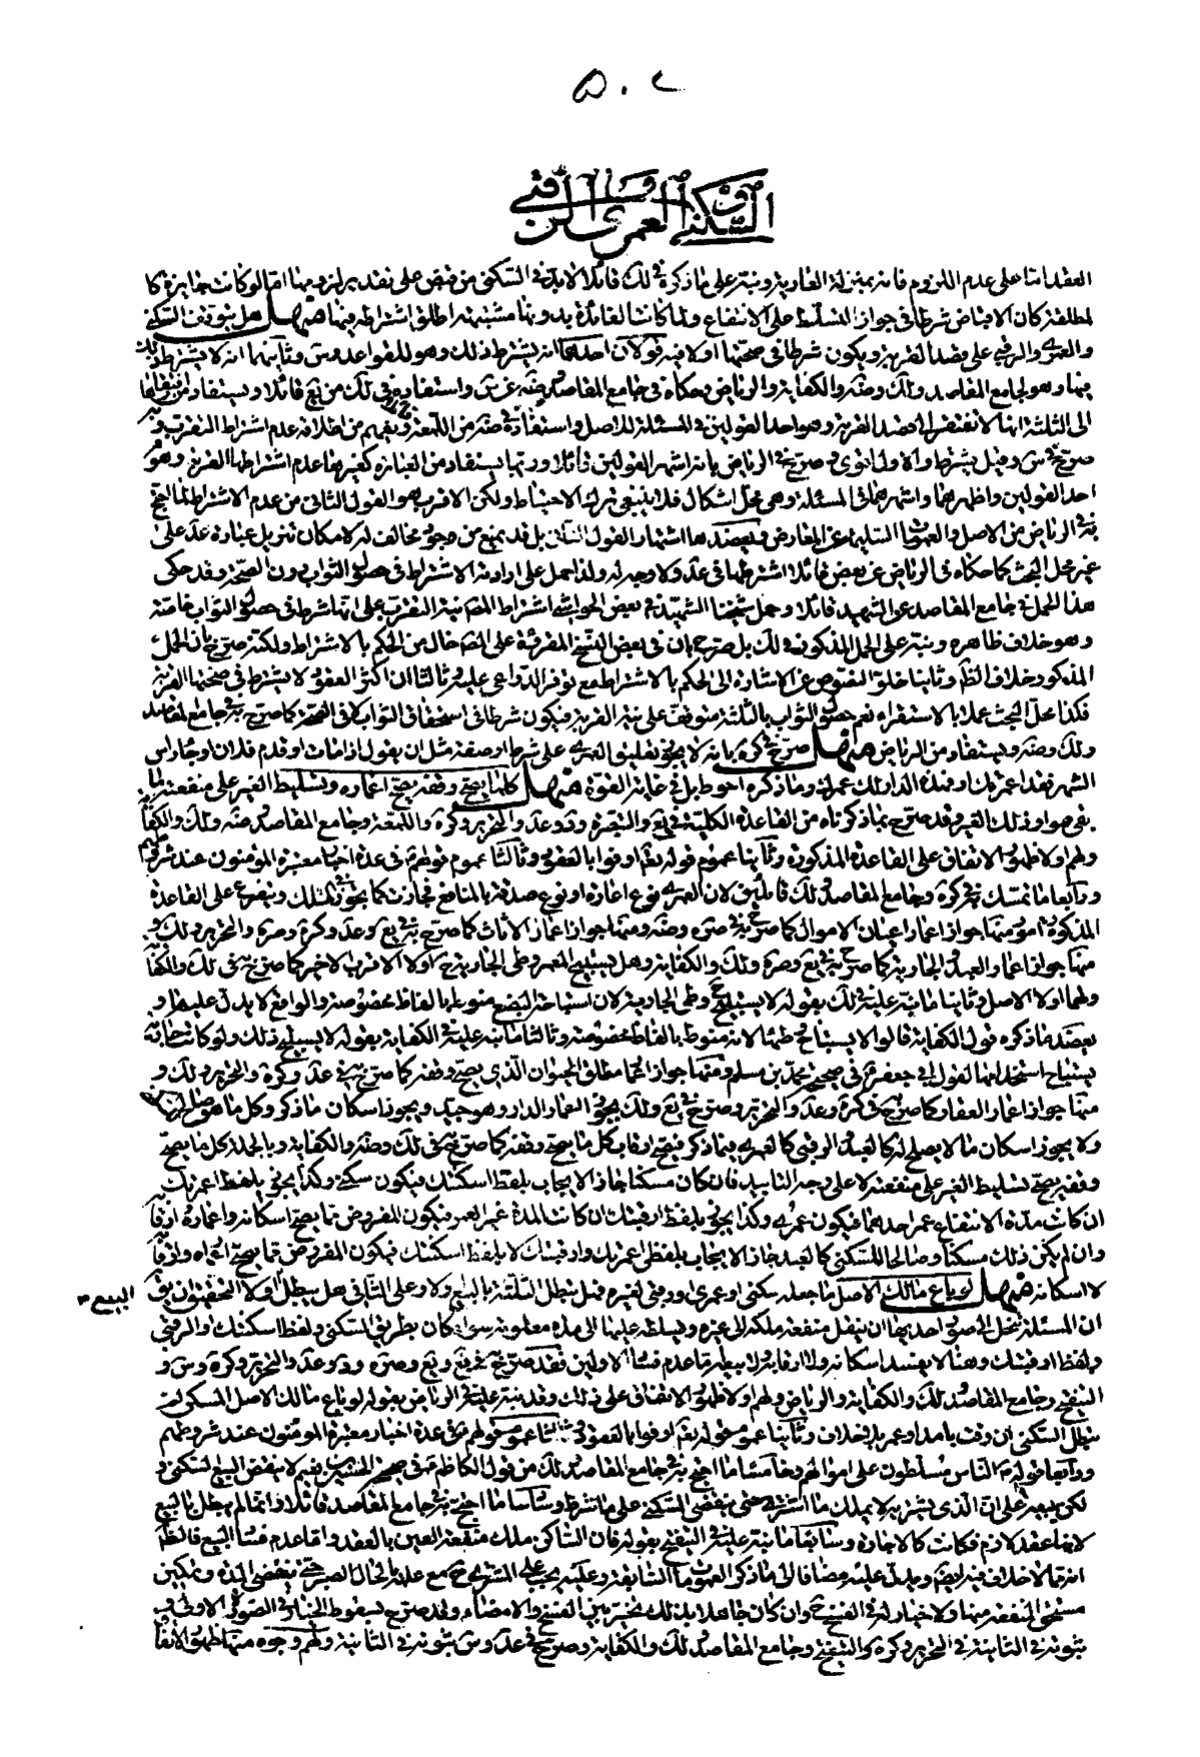 ٥٠٤
السكنى والعمرى والرقبى
العقد اما على عدم اللزوم فانه بمنزلة العارية ونبه على ما ذكره في لك قائلا لا بد في السكنى من قبض على تقدير لزومها اما لو كانت جايزة كا
لمطلقة كان الاقباض شرطا في جواز التسلط على الانتفاع ولما كانت الفائدة بدونها منتفية اطلق اشتراطه فيها منها هل يتوقف السكنى
والعمرى والرقبى على قصد القربة ويكون شرطا في صحتها او لا فيه قولان احدهما انه يشترط ذلك وهو للقواعد وس وثانيهما انه لا يشترط ذلك
فيها وهو لجامع المقاصد ولك وضه والكفاية والرياض وحكاه في جامع المقاصد عن س واستفاده في لك من يع قائلا ويستفاد من
الى الثلثة انها لا تفتقر الى قصد القربة وهو احد القولين في المسئلة للاصل واستفاده في ضه من اللمعة ويفهم من اطلاقه عدم اشتراط التقرب وبه
صرح س وقيل يشترط والاول اقوى وصرح في الرياض بانه اشهر القولين قائلا وربما يستفاد من العبارة كغيرها عدم اشتراطها القربة وهو
احد القولين واظهرهما واشهرهما في المسئلة وهي محل اشكال فلا ينبغي ترك الاحتياط ولكن الاقرب هو القول الثاني من عدم الاشتراط لما احتج
به في الرياض من الاصل والعمومات السليمة عن المعارض ويعضدها اشتهار القول الثاني بل قد يمنع من وجود مخالف له لامكان تنزيل عبارة عد على
غير محل البحث كما حكاه في الرياض عن بعض قائلا اشترطها في عد ولا وجه له ولذا حمل على ارادته الاشتراط في حصول الثواب دون الصحة وقد حكى
هذا الحمل في جامع المقاصد عن الشهيد قائلا وحمل شيخنا الشهيد في بعض الحواشي اشتراط المصنف نية التقرب على انها شرط في حصول الثواب خاصة
وهو خلاف ظاهره ونبه على الحمل المذكور في لك بل صرح بان في بعض النسخ المقروة على المصنف خال من الحكم بالاشتراط ولكنه صرح بان الحمل
المذكور خلاف الظ وثانيا خلو النصوص عن الاشارة الى الحكم بالاشتراط مع توفر الدواعي عليه وثالثا ان اكثر العقود لا يشترط في صحتها القربة
فكذا محل البحث عملا بالاستقراء نعم حصول الثواب بالثلثة متوقف على نية القربة فيكون شرطا في استحقاق الثواب لا في الصحة كما صرح به في جامع المقاصد
ولك وضه ويستفاد من الرياض منها صرح في كره بانه لا يجوز تعليق العمرى على شرط او صفة مثل ان يقول اذا مات او قدم فلان او جاء راس
الشهر فقد اعمرتك او فهذه الدار لك عمرى وما ذكره احوط بل في غاية القوة منها كلما يصح وقفه يصح اعماره وتسليط الغير على منفعته
بقى هو او ذلك الغير وقد صرح بما ذكرناه من القاعدة الكلية في يع والتبصرة وفد وعد والتحرير وكره واللمعة وجامع المقاصد وضه ولك والكفا
ولهم اولا ظهور الاتفاق على القاعدة المذكورة وثانيا عموم قوله تعالى اوفوا بالعقود وثالثا عموم قولهم في عدة اخبار معتبرة المؤمنون عند شروطهم
ورابعا ما تمسك به في كره وجامع المقاصد ولك قائلين لان العمرى نوع اعارة او نوع صدقة بالمنافع فجازت كما يجوز تلك ويتفرع على القاعدة
المذكورة امور منها جواز اعمار اعيان الاموال كما صرح به في صره وضه ومنها جواز اعمار الاثاث كما صرح به في يع وعد وكره وصره والتحرير ولك و
منها جواز اعمار العبد والجارية كما صرح به في يع وصره ولك والكفاية وهل يستبيح المعمر وطى الجارية ح او لا الاقرب الاخير كما صرح به في لك والكفا
ولهما اولا الاصل وثانيا ما نبه عليه في لك بقوله لا يستبيح وطى الجارية لان استباحة البضع منوطة بالفاظ مخصوصة والواقع لا يدل عليها و
يعضده ما ذكره قول الكفاية قالوا لا يستباح وطئها لانه منوط بالفاظ مخصوصة وثالثا ما نبه عليه في الكفاية بقوله لا يستبيح ذلك ولو كانت خالية
يستباح استخدامها لقول ابي جعفر في صحيح محمد بن مسلم ومنها جواز اعمار مطلق الحيوان الذي يصح وقفه كما صرح به في عد وكره والتحرير ولك و
منها جواز اعمار العقار كما صرح في كره وعد والتحرير وصرح في يع ولك بجواز اعمار الدار وهو جيد ويجوز اسكان ما ذكر وكل ما هو صالح لها
ولا يجوز اسكان ما لا يصلح له كالعبد والرقبى كالعمرى فيما ذكر فيصح ارقاب كل ما يصح وقفه كما صرح به في لك وضه والكفاية وبالجملة كل ما يصح
وقفه يصح تسليط الغير على منفعته لا على وجه التابيد فان كان مسكنا جاز الايجاب بلفظ اسكنتك فيكون سكنى وكذا يجوز بلفظ اعمرتك
ان كانت مدة الانتفاع عمر احدهما فيكون عمرى وكذا يجوز بلفظ ارقبتك ان كانت المدة غير العمر فيكون المفروض مما يصح اسكانه واعماره وارقا
وان لم يكن ذلك مسكنا وصالحا للسكنى كالعبد جاز الايجاب بلفظ اعمرتك وارقبتك لا بلفظ اسكنتك فيكون المفروض مما يصح اعماره وارقا
لا اسكانه منها لو باع مالك الاصل ما جعله سكنى او عمرى او رقبى لغيره فهل يبطل الثلثة بالبيع او لا وعلى الثاني هل يبطل البيع او لا التحقيق ان يق
ان المسئلة تنحل الى صور احديها ان ينقل منفعة ملكه الى غيره ويسلطه عليها الى مدة معلومة سواء كان بطريق السكنى ولفظ اسكنتك او الرقبى
ولفظ ارقبتك وهنا لا يفسد اسكانه ولا ارقابه ولا بيعه اما عدم فساد الاولين فقد صرح به في يع ويع وصره وفد وعد والتحرير وكره وس و
التنقيح وجامع المقاصد ولك والكفاية والرياض ولهم اولا ظهور الاتفاق على ذلك وقد نبه عليه في الرياض بقوله لو باع مالك الاصل السكن لم
يبطل السكنى ان وقت بامد او عمر بلا خلاف وثانيا عموم قوله تعالى اوفوا بالعقود وثالثا عموم قولهم في عدة اخبار معتبرة المؤمنون عند شروطهم
ورابعا قوله ص الناس مسلطون على اموالهم وخامسا ما احتج به في جامع المقاصد ولك من قول الكاظم في صحيح الحسين بن نعيم لا ينقض البيع السكنى و
لكن يبيعه على ان الذي يشتريه لا يملك ما اشترى حتى ينقضي السكنى على ما شرط وسادسا ما احتج به في جامع المقاصد قائلا اذ انما لم يبطل بالبيع
لانها عقد لازم فكانت كالاجارة وسابعا ما نبه عليه في التنقيح بقوله فان الساكن ملك منفعة العين بالعقد واما عدم فساد البيع فالظ
انه مما لا خلاف فيه ايضا ويدل عليه مضافا الى ما ذكر العمومات السابقة وعليه يجب على المشتري ح مع علمه بالحال الصبر حتى ينقضي المدة وتمكين
مستحق المنفعة منها ولا خيار له في الفسخ ح وان كان جاهلا بذلك تخير بين الفسخ والامضاء وقد صرح بسقوط الخيار في الصورة الاولى و
بثبوته في الثانية في التحرير وكره والتنقيح وجامع المقاصد ولك والكفاية وصرح في عد وس بثبوته في الثانية ولهم وجوه منها ظهور الاتفا
البيع